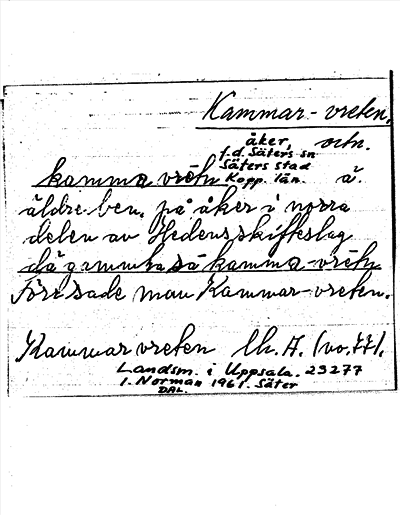 Kammar-vreten,
åker, ortn.
f.d. Säters sn
Säters stad
kamma vrétn Kopp. län. ä.
äldre ben. på åker i norra
delen av Hedens skifteslag
sa kamma-vrétn
Förr sade man Kammar-vreten.
Kammar vreten lh. A. (vo. 77).
Landsm. i Uppsala. 23277
I. Norman 1961. Säter
DAL.